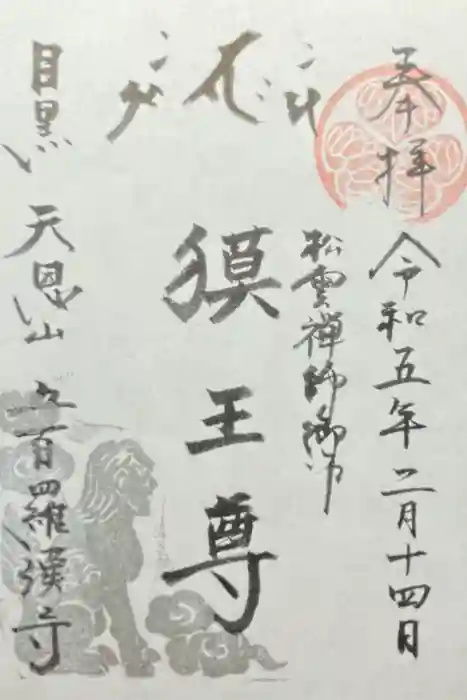 奉拝
令和五年二月十四日
松雲禅師御作
獏王尊
目黒
天恩山
五百羅漢寺